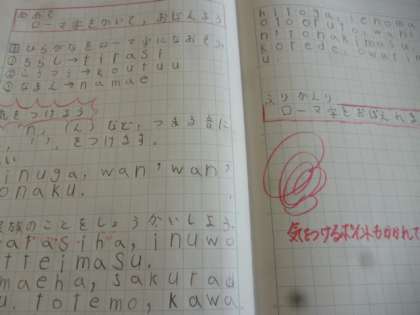 めあて
ローマ字をかいて、おぼえよう
①ひらがなをローマ字になおそう
①ちらし→tirasi
②こうつう→koutuu
③なまえ→namae
気をつけよう
「n」(ん)など、つまる音に
「'」をつけます。
inuga, wan'wan'
onaku.
家族のことをしょうかいしよう。
inuwo
tteimasu.
maeha, sakura
u. totemo, kawa
hitoga,
nitonakimasu
koredeowarim
u
ふりかえり
ローマ字をおぼえれ
気をつけるポイントもかかれて